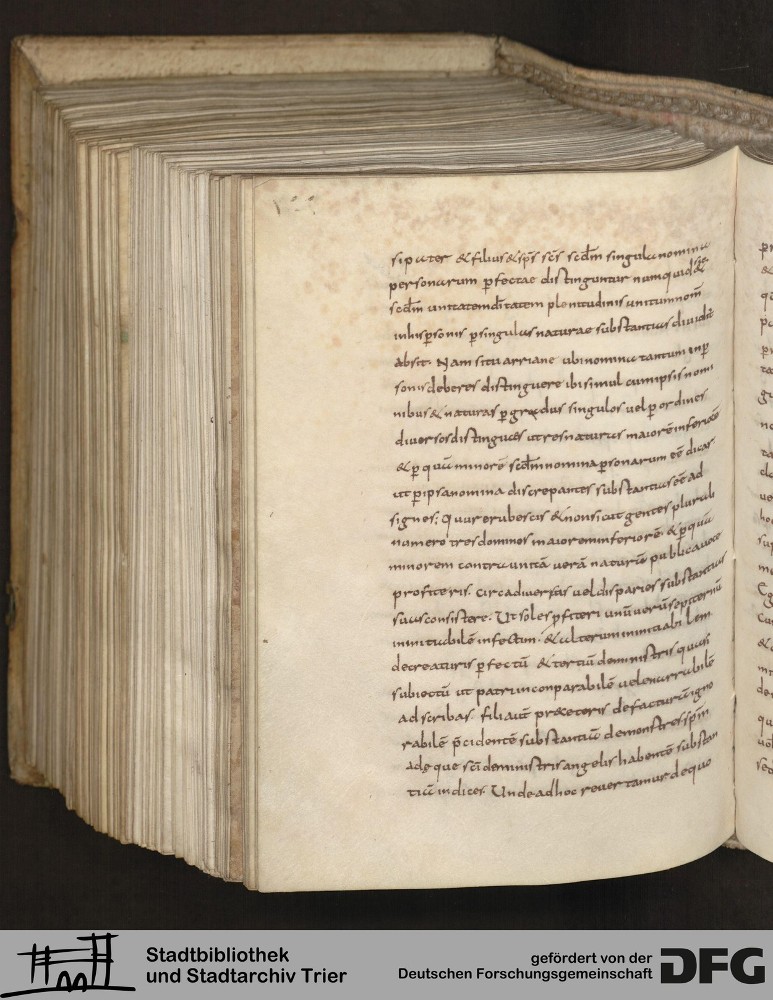 si pater & filius & sp̄s sc̄s scdm̄ singula nomina
personarum ꝑfectae distinguntur numquid &
scdm̄ unitatem dītatem plenitudinis unitum nom̄
in his ꝑsonis ꝑ singulas naturae substantias diuidit
absit. Nam si tu arriane ubi nomina tantum in ꝑ
sonis deberes distinguere ibi simul cum ipsis nomi
nibus & naturas ꝑ gradus singulos uel ꝑ ordines
diuersos distinguis ut tres naturas maiorē inferiorē
& ꝑquā minorē scdm̄ nomina ꝑsonarum eē dicas
ut ꝑ ipsa nomina discrepantes substantias eē ad
signes; Quur erubescis & non sicut gentes plurali
numero tres dominos maiorem inferiorē & ꝑquā
minorem contra unitā uerā naturā publica uoce
profiteris. circa diuersas uel dispares substantias
suas consistere. Ut soles ꝑfiteri unū uerū sempiternū
inimitabilē infectum. & alterum inimitabilem
de creaturis ꝑfectū & tertiū de ministris quasi
subiectū ut patri inconparabilē uel enarrabilē
adscribas. filiaut̄ prae ceteris de factura igno
rabilē p̄cidentē substantiā demonstres sp̄m
adeque sc̄i de ministris angelis habentē substan
tiā indices. Unde adhoc reuertamur de quo
Stadtbibliothek
und Stadtarchiv Trier
gefördert von der
Deutschen Forschungsgemeinschaft
DFG